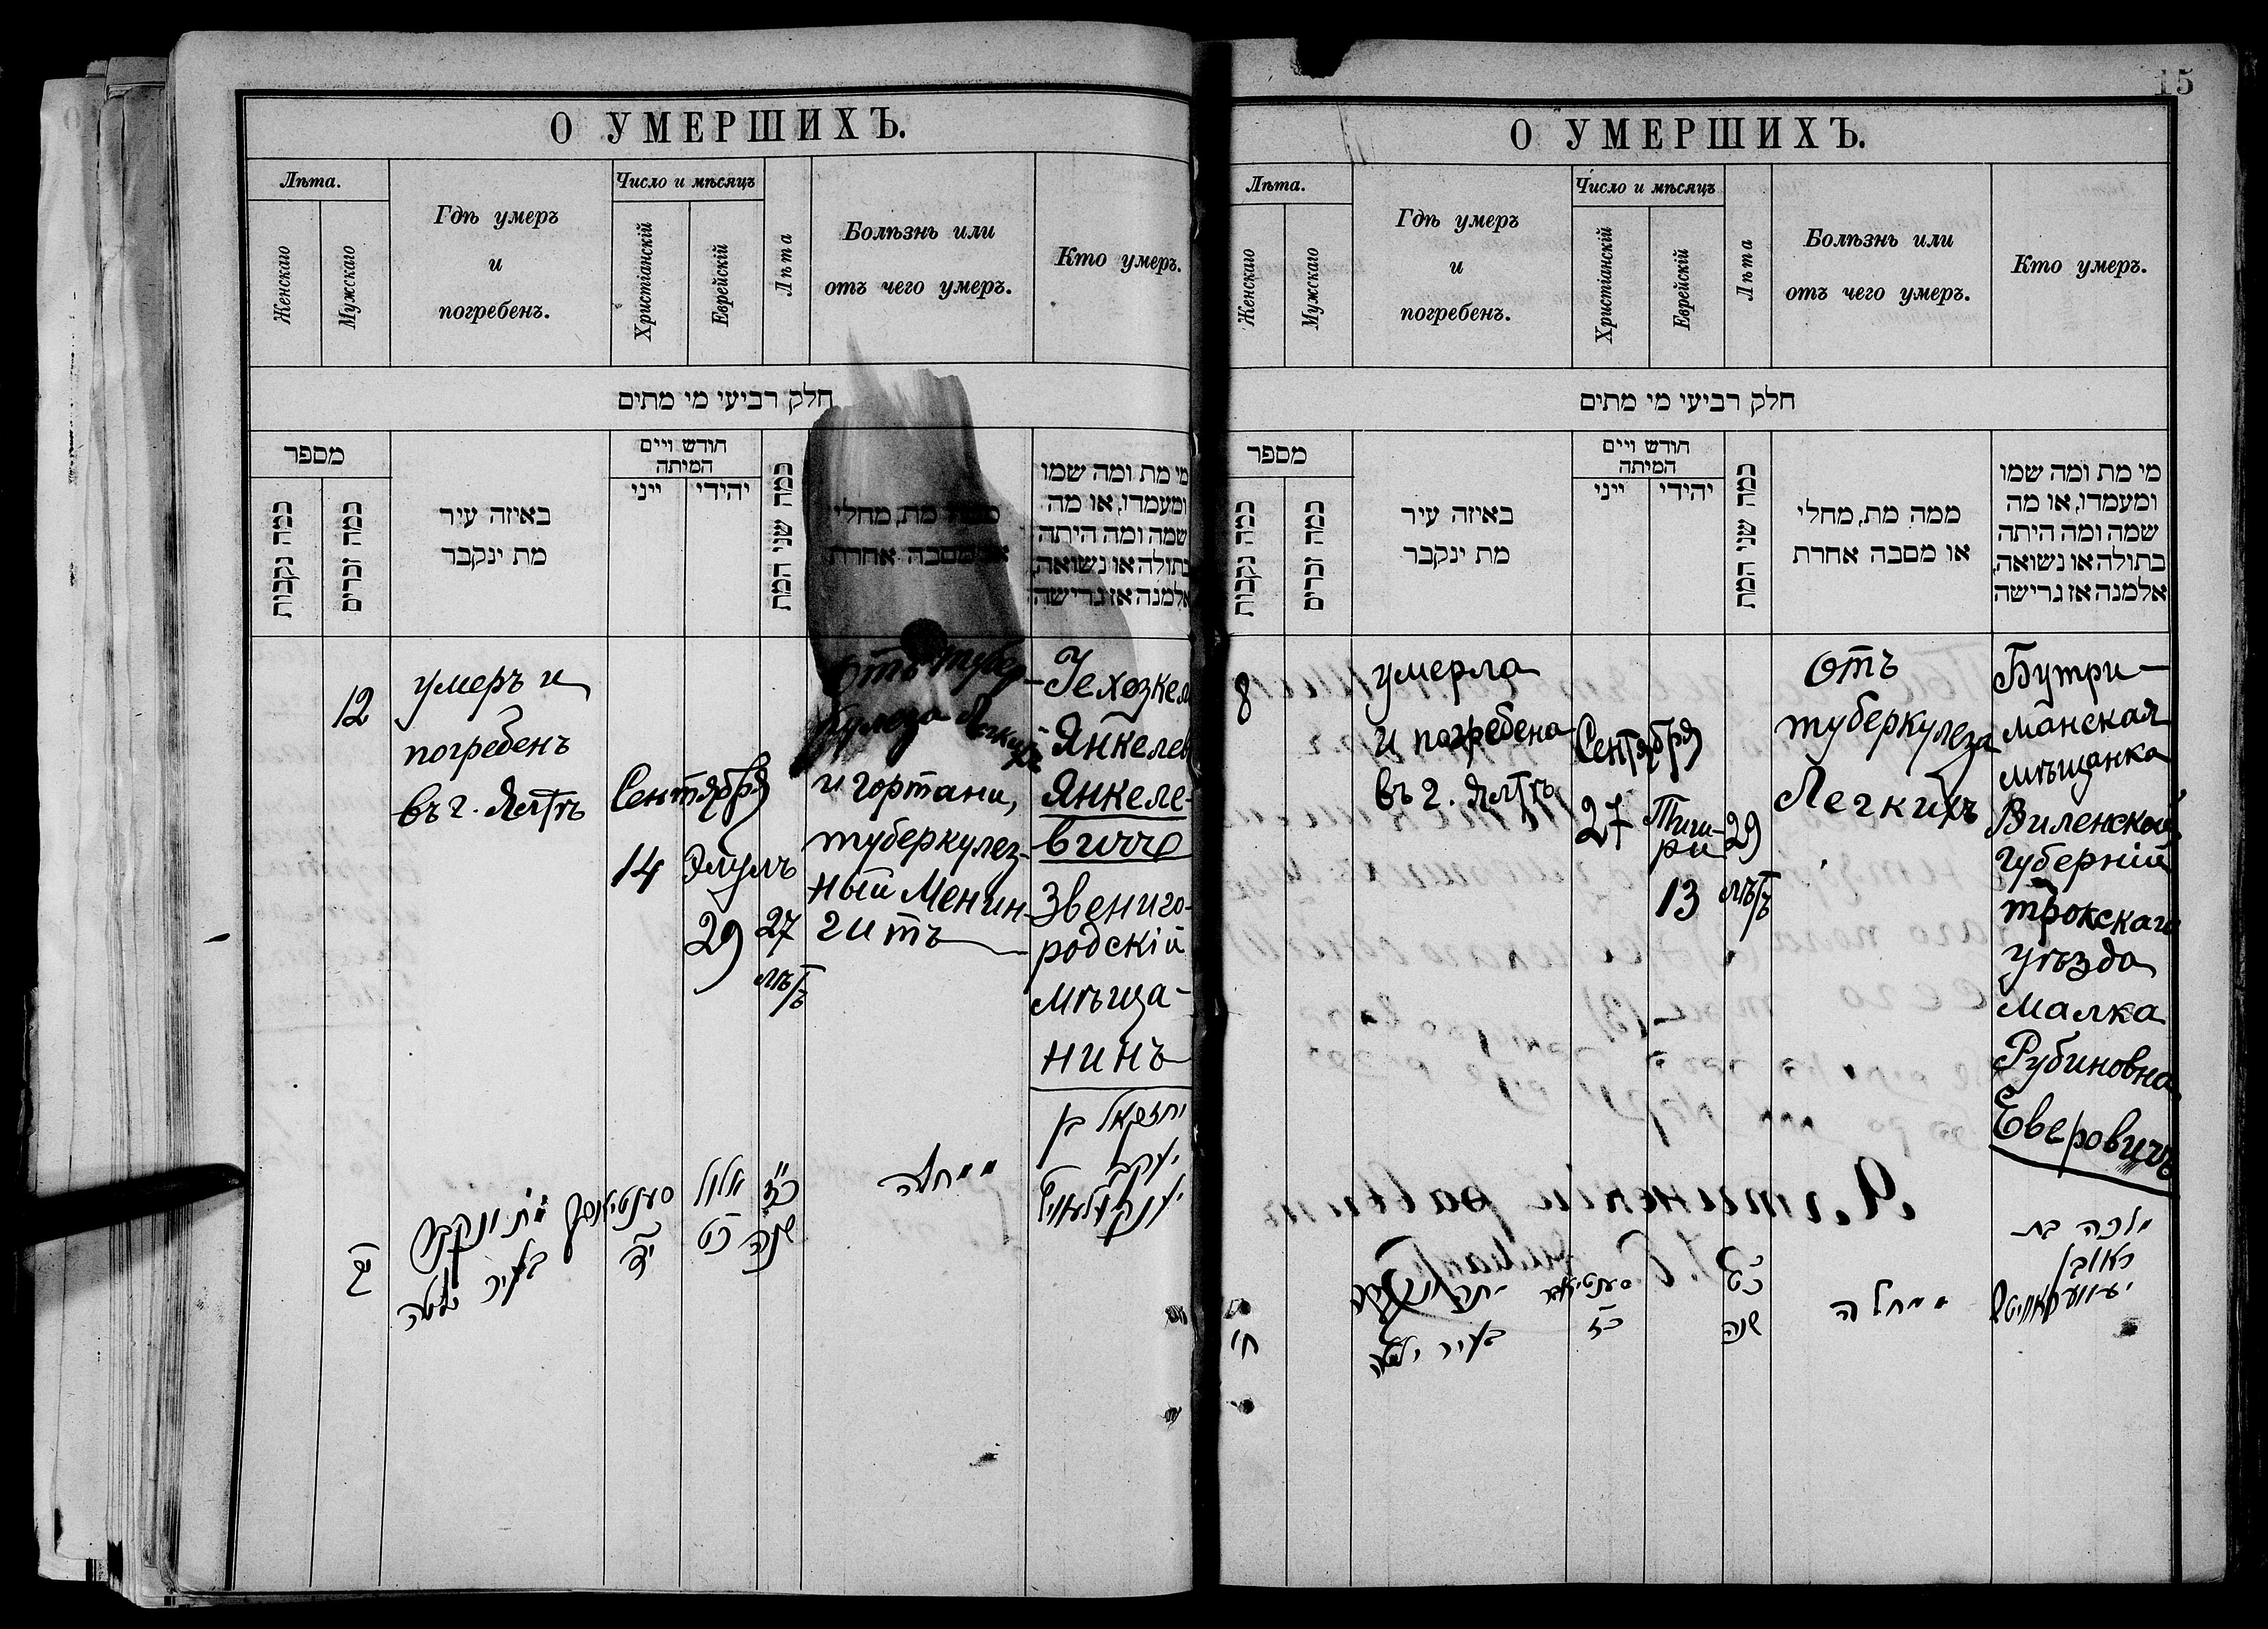 15
О УМЕРШИХЪ.
Лѣта.
Женскаго
Мужскаго
Гдѣ умеръ
и
погребенъ.
Число и мѣсяцъ
Христіанскій
Еврейскій
Лѣта
Болѣзнь или
отъ чего умеръ.
Кто умеръ.
חלק רביעי מי מתים
מספר
כמה נקבות
כמה זכרים
באיזה עיר
מת ינקבר
חודש ויים
המיתה
ייני
יהודי
כמה שני המת
ממה מת, מחלי
או מסבה אחרת
מי מת ומה שמו
ומעמדו, או מה
שמה ומה היתה
בתולה או נשואה,
אלמנה אז גרישה
12
умеръ и
погребенъ
въ г. Ялтѣ
Сентября
14
Элулъ
29
27
лѣтъ
отъ тубер-
кулеза Легкихъ
и гортани,
туберкулез-
ный Менин-
гитъ
Іехозкел
Янкелев
Янкеле-
вичъ
Звениго-
родскій
мѣща-
нинъ
יחזקאל בן
יעקב
מת ונקבר
בעיר יאלטה
י״ד
אלול
כ״ט
כ״ז
שנה
ממחלה
О УМЕРШИХЪ.
Лѣта.
Женскаго
Мужскаго
Гдѣ умеръ
и
погребенъ.
Число и мѣсяцъ
Христіанскій
Еврейскій
Лѣта
Болѣзнь или
отъ чего умеръ.
Кто умеръ.
חלק רביעי מי מתים
מספר
כמה נקבות
כמה זכרים
באיזה עיר
מת ינקבר
חודש ויים
המיתה
ייני
יהודי
כמה שני המת
ממה מת, מחלי
או מסבה אחרת
מי מת ומה שמו
ומעמדו, או מה
שמה ומה היתה
בתולה או נשואה,
אלמנה אז גרישה
8
умерла
и погребена
въ г. Ялтѣ
Сентября
27
Тиш-
ри
13
29
лѣтъ
Отъ
туберкулеза
Легкихъ
Бутри-
манская
мѣщанка
Виленской
губерніи
трокскаго
уѣзда
Малка
Рубиновна
Еверовичъ
מלכה בת
ראובן
ממחלה
כ״ט
שנה
כ״ז
בעיר יאלטה